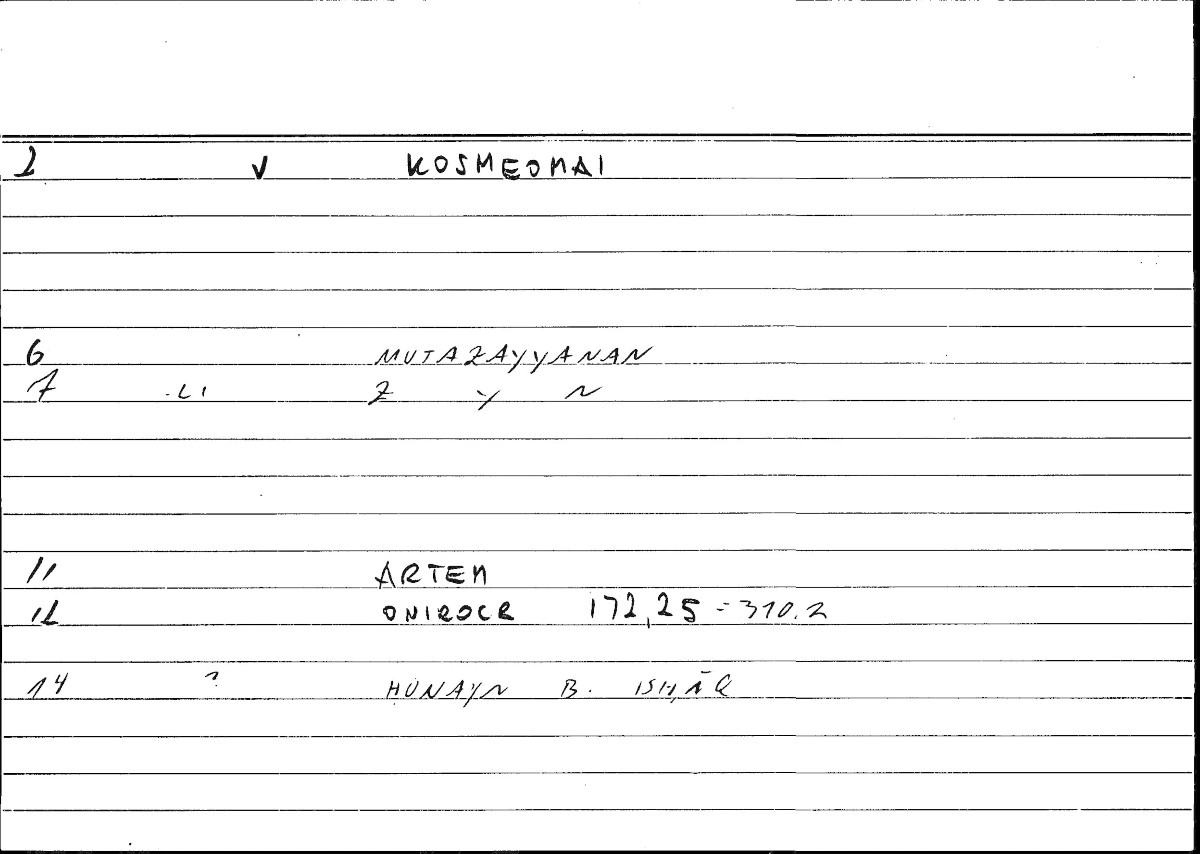 2 V KOSMEOMAI
6 MUTAZAYYANAN
7 .LI Z Y N
11 ARTEM
12 ONIROCR 172,25 = 310.2
14 ? ḤUNAYN B. ISḤĀQ